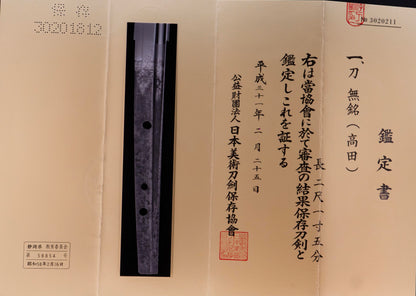 鑑定書
一、刀 無銘(高田)
長 二尺一寸五分
右は當協會に於て審査の結果保存刀剣と
鑑定しこれを証する
平成三十一年 二月 二十五日
公益財團法人 日本美術刀剣保存協會
№ 3020211
保存
30201812
静岡県 教育委員会
第 58854 号
昭和58年2月16日